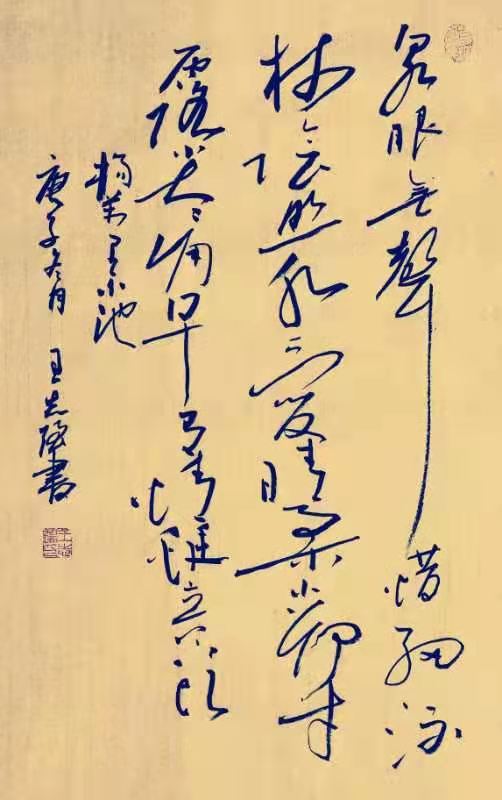 泉眼無聲惜細流
树陰照水爱晴柔小荷才
露尖尖角早有蜻蜓立上头
楊萬里小池
庚子冬月 王志書